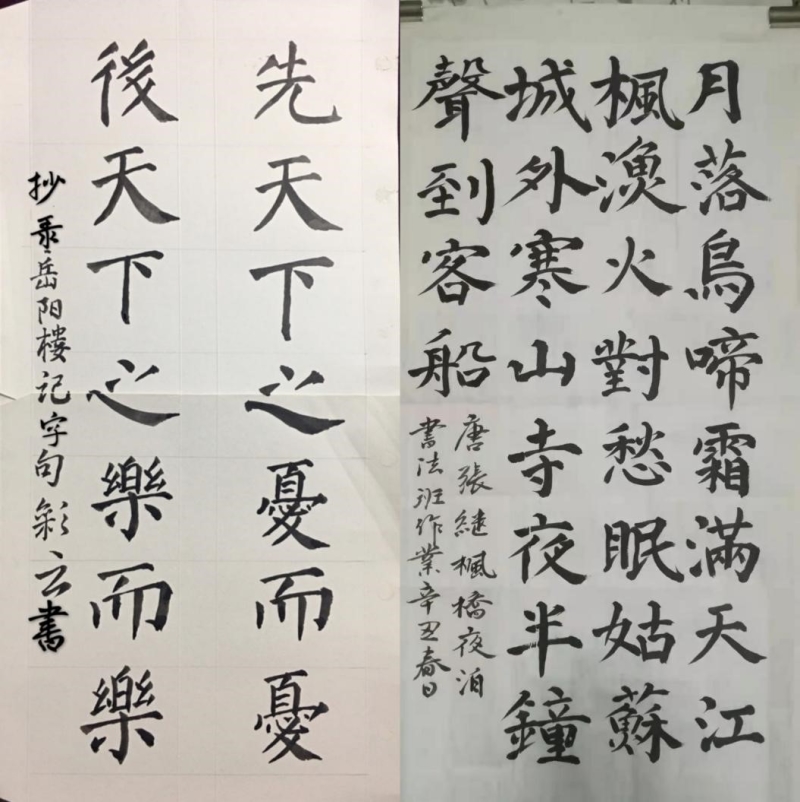 先天下之憂而憂
後天下之樂而樂
抄录岳阳楼记字句彩云書
月落烏啼霜滿天江
楓漁火對愁眠姑蘇
城外寒山寺夜半鐘
聲到客船
唐張継楓橋夜泊
書法班作業辛丑春日